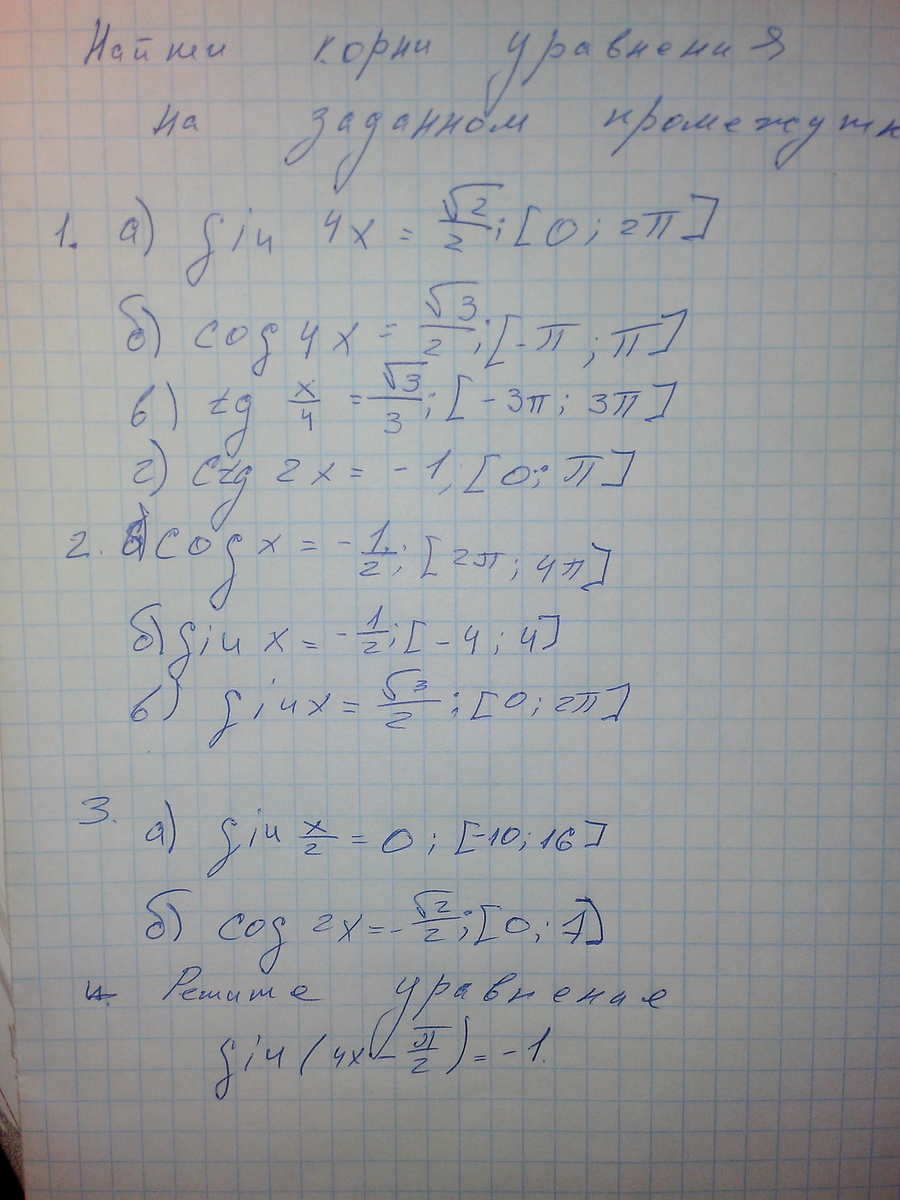 Найти корни уравнения
на заданном промежутк
1. а) sin 4x = √2/2; [0; 2π]
б) cos 4x = √3/2; [-π; π]
в) tg x/4 = √3/3; [-3π; 3π]
г) ctg 2x = -1; [0; π]
2. а) cos x = -1/2; [2π; 4π]
б) sin x = -1/2; [-4; 4]
в) sin x = √3/2; [0; 2π]
3. а) sin x/2 = 0; [-10; 16]
б) cos 2x = -√2/2; [0; 7]
4. Решите уравнение
sin (4x - π/2) = -1.